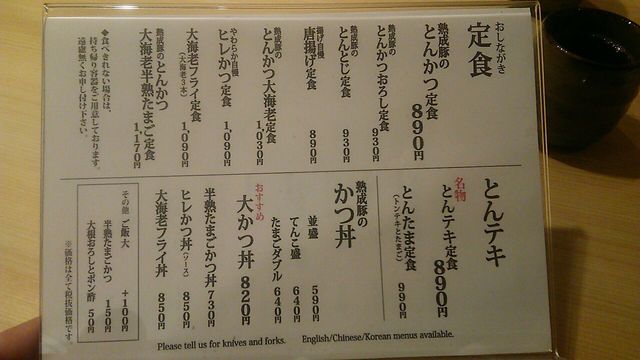 おしながき
定食
熟成豚の
とんかつ定食 890円
熟成豚の
とんかつおろし定食 930円
熟成豚の
とんとじ定食 930円
揚げ自慢
唐揚げ定食 890円
熟成豚の
とんかつ大海老定食 1,030円
やわらか自慢
ヒレかつ定食 1,090円
大海老フライ定食 1,090円
(大海老3本)
熟成豚のとんかつ
大海老半熟たまご定食 1,170円
◆食べきれない場合は、
持ち帰り容器をご用意しております。
遠慮無くお申し付け下さい。
とんテキ
名物
とんテキ定食 890円
とんたま定食 990円
(トンテキとたまご)
熟成豚の
かつ丼
並盛 590円
てんこ盛 640円
たまごダブル 640円
おすすめ
大かつ丼 820円
半熟たまごかつ丼 730円
ヒレかつ丼(ソース) 850円
大海老フライ丼 850円
その他 ご飯大 +100円
半熟たまご 150円
大根おろしとポン酢 50円
※価格は全て税抜価格です。
Please tell us for knives and forks. English/Chinese/Korean menus available.